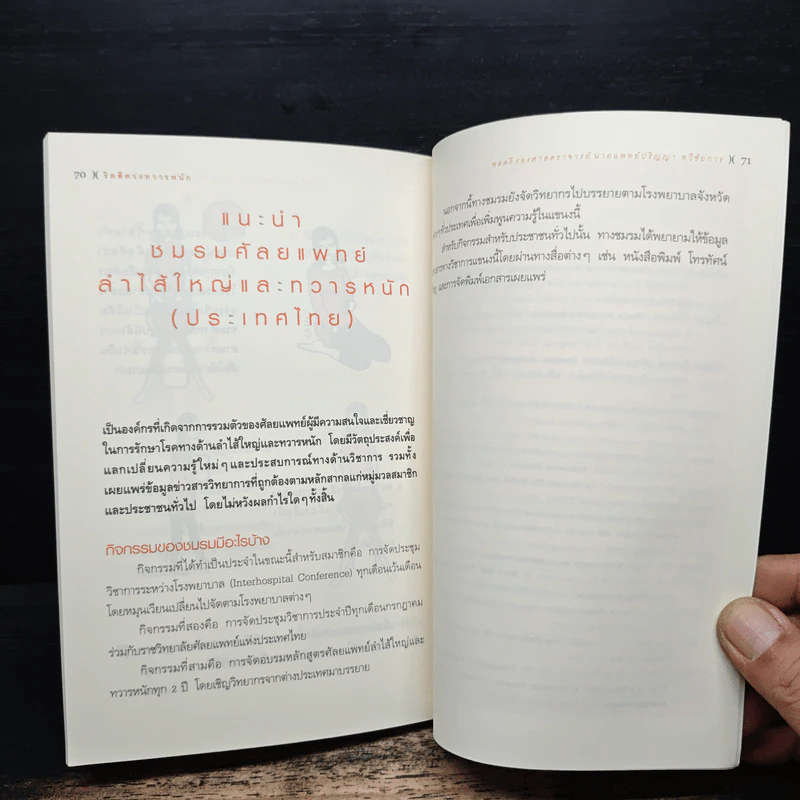 70 )( ริดสีดวงทวารหนัก
แนะนำ
ชมรมศัลยแพทย์
ลำไส้ใหญ่และทวารหนัก
(ประเทศไทย)
เป็นองค์กรที่เกิดจากการรวมตัวของศัลยแพทย์ผู้มีความสนใจและเชี่ยวชาญ
ในการรักษาโรคทางด้านลำไส้ใหญ่และทวารหนัก โดยมีวัตถุประสงค์เพื่อ
แลกเปลี่ยนความรู้ใหม่ ๆ และประสบการณ์ทางด้านวิชาการ รวมทั้ง
เผยแพร่ข้อมูลข่าวสารวิทยาการที่ถูกต้องตามหลักสากลแก่หมู่มวลสมาชิก
และประชาชนทั่วไป โดยไม่หวังผลกำไรใด ๆ ทั้งสิ้น
กิจกรรมของชมรมมีอะไรบ้าง
กิจกรรมที่ได้ทำเป็นประจำในขณะนี้สำหรับสมาชิกคือ การจัดประชุม
วิชาการระหว่างโรงพยาบาล (Interhospital Conference) ทุกเดือนเว้นเดือน
โดยหมุนเวียนเปลี่ยนไปจัดตามโรงพยาบาลต่าง ๆ
กิจกรรมที่สองคือ การจัดประชุมวิชาการประจำปีทุกเดือนกรกฎาคม
ร่วมกับราชวิทยาลัยศัลยแพทย์แห่งประเทศไทย
กิจกรรมที่สามคือ การจัดอบรมหลักสูตรศัลยแพทย์ลำไส้ใหญ่และ
ทวารหนักทุก 2 ปี โดยเชิญวิทยากรจากต่างประเทศมาบรรยาย
รองศาสตราจารย์ นายแพทย์ปริญญา ทวีชัยการ )( 71
นอกจากนี้ทางชมรมยังจัดวิทยากรไปบรรยายตามโรงพยาบาลจังหวัด
ทั่วประเทศเพื่อเพิ่มพูนความรู้ในแขนงนี้
สำหรับกิจกรรมสำหรับประชาชนทั่วไปนั้น ทางชมรมได้พยายามให้ข้อมูล
ทางวิชาการแขนงนี้โดยผ่านทางสื่อต่าง ๆ เช่น หนังสือพิมพ์ โทรทัศน์
และการจัดพิมพ์เอกสารเผยแพร่